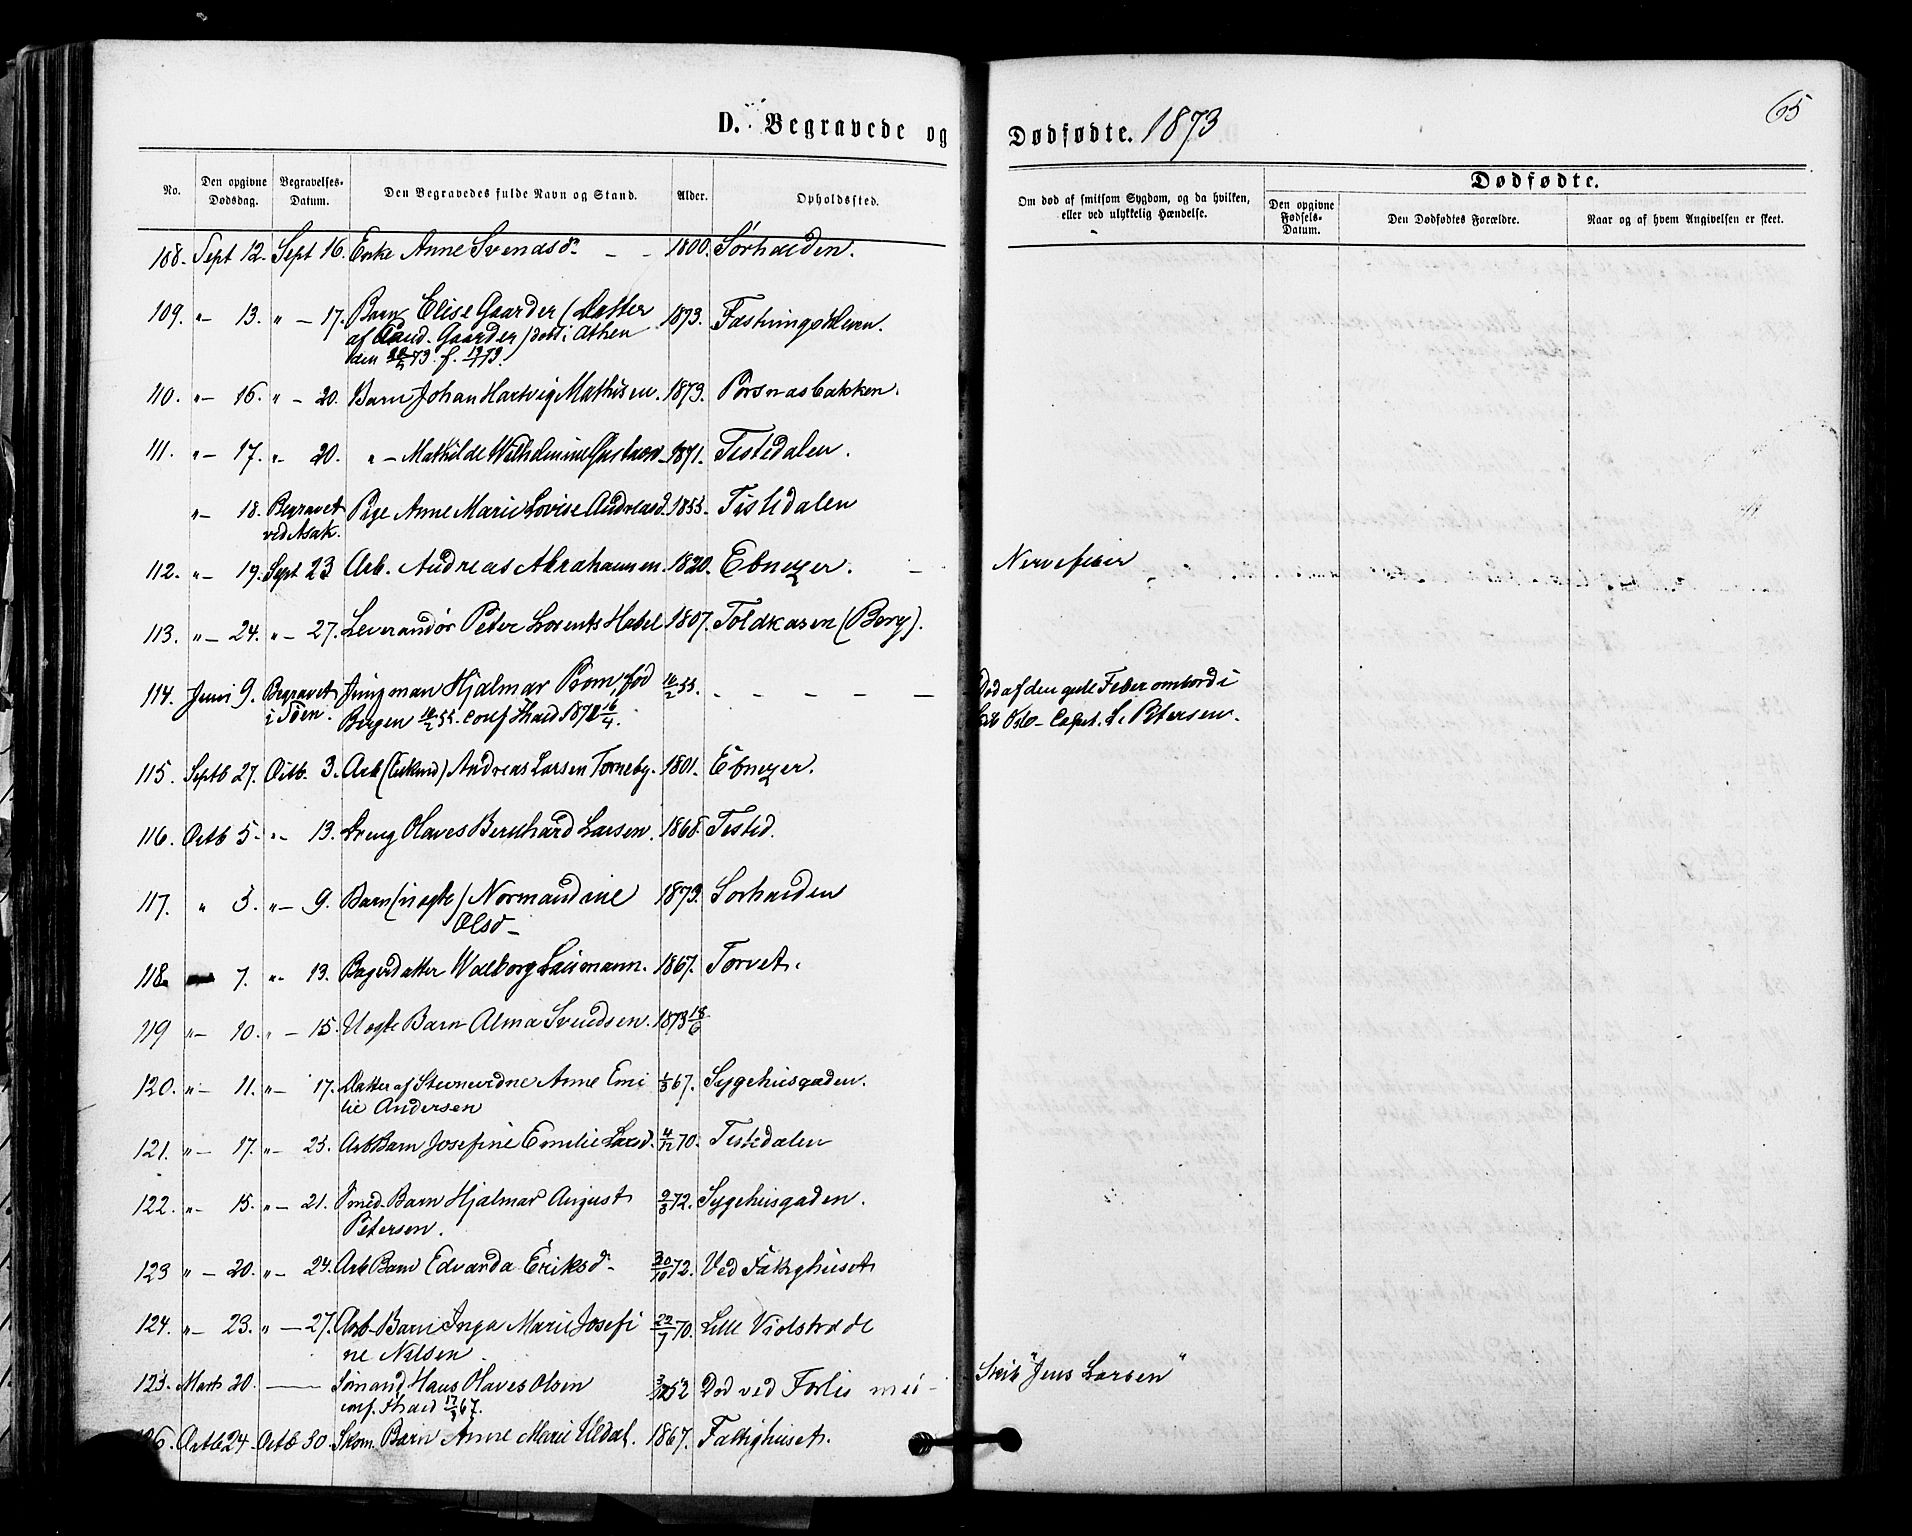 D. Begravede og Dødfødte. 1873
65
No.
Den opgivne Dødsdag.
Begravelses-Datum.
Den Begravedes fulde Navn og Stand.
Alder.
Opholdssted.
Om død af smitsom Sygdom, og da hvilken, eller ved ulykkelig Hændelse.
Dødfødte.
Den opgivne Fødsels-Datum.
Den Dødfødtes Forældre.
Naar og af hvem Angivelsen er skeet.
108. Sept 12. Sept 16. Enke Anne Svendsd. - - 1800. Sørhalden.
109. " - 13. " - 17. Barn Elise Gaarder (Datter 1873.
af Cand. Gaarder) død i Athen
den f.
110. " - 16. " - 20. Barn Johan Hartvig Mathisen. 1873. Pørsnasbakken.
111. " - 17. " - 20. " - Mathilde Wilhelmine Gustavd. 1871. Tistedalen.
" - 18. Begravet Pige Anne Marie Lovise Andreasd. 1855. Tistedalen
ved Asak.
112. " - 19. Sept 23 Arb. Andreas Abrahamsen. 1820. Ebnezer. - Nervefeber
113. " - 24. " - 27. Leverandør Peter Lorents Habel 1807. Toldkasen (Borg).
114. Juni 9. Begravet Jungman Hjalmar Prom, fød 16/2 55. - - - - - Død af den gule Feber ombord i
i Søen. Bergen 16/2 55. conf. Fhald 1871 16/4. Skib Oslo - Capt. L. Petersen.
115. Septb 27. Octb. 3. Arb. Andreas Larsen Torneby. 1801. Ebnezer.
116. Octb 5. " - 13. Dreng Olaves Bernhard Larsen. 1868. Tisted.
117. " 5. " - 9. Barn (uægte) Normandine 1873. Sørhalden
Olsd -
118. 7. " - 13. Bagerdatter Walborg Laumann. 1867. Torvet.
119 " - 10. " - 15. Uægte Barn Alma Svendsen. 1873 18/6
120. " - 11. " - 17. Datter af Anne Emi 1/3 67. Sygehusgaden.
lie Andersen
121. " - 17. " - 23. Arb Barn Josefine Emilie Larsd. 4/12 70. Tistedalen
122. " - 15. " - 21. Smed. Barn Hjalmar August 9/3 72. Sygehusgaden.
Petersen.
123 " - 20. " - 24. Arb Barn Edvarda Eriksd - 30/10 72. Ved Fattighuset
124. " - 23. " - 27. Arb. Barn Inga Marie Josefi 22/7 70. Lille Violstræde
ne Nilsen
125. Marts 20. - Sømand Hans Olaves Olsen 52 Død ved Forlis med - Skib "Jens Larsen"
conf. Fhald 67.
126. Octb 24. Octb 30. Skom. Barn Anne Marie Uldal. 1867. Fattighuset.